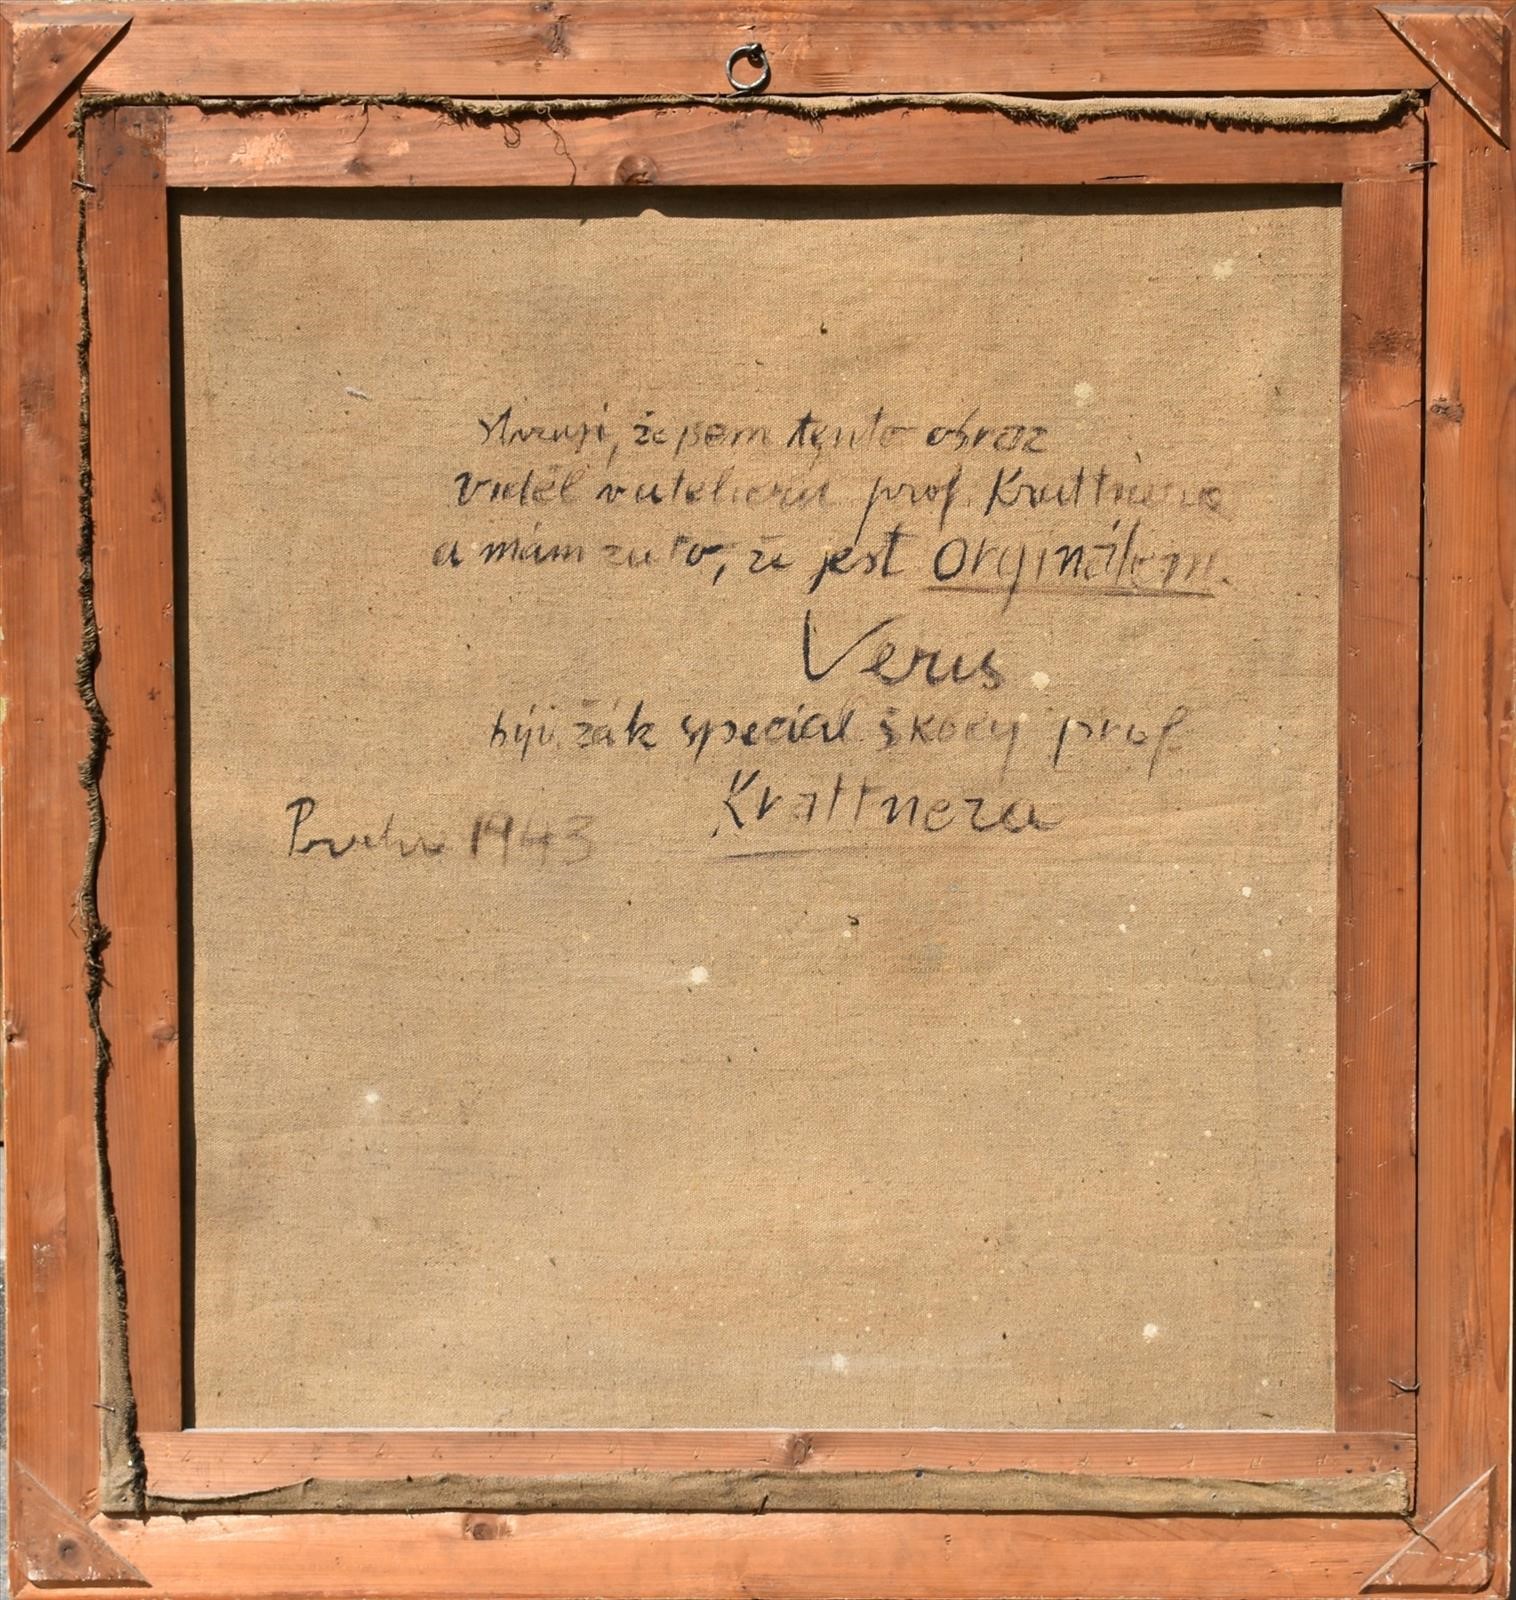 stvrzuji, že jsem tento obraz
viděl v atelieru prof. Krattnera
a mám za to, že jest orginálem.
Verus
býv. žák special. školy prof
Krattnera
Praha 1943